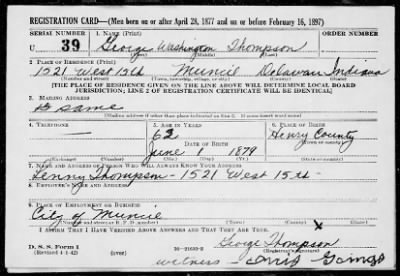 REGISTRATION CARD—(Men born on or after April 28, 1877 and on or before February 16, 1897)
SERIAL NUMBER 1. NAME (Print) ORDER NUMBER
U 39 George Washington Thompson
(First) (Middle) (Last)
2. PLACE OF RESIDENCE (Print)
1521 West 15th Muncie Delaware Indiana
(Number and street) (Town, township, village, or city) (County) (State)
[THE PLACE OF RESIDENCE GIVEN ON THE LINE ABOVE WILL DETERMINE LOCAL BOARD
JURISDICTION; LINE 2 OF REGISTRATION CERTIFICATE WILL BE IDENTICAL]
3. MAILING ADDRESS
same
[Mailing address if other than place indicated on line 2. If same insert word same]
4. TELEPHONE 5. AGE IN YEARS 6. PLACE OF BIRTH
62 Henry County
DATE OF BIRTH (Town or county)
June 1 1879
(Exchange) (Number) (Mo.) (Day) (Yr.) (State or country)
7. NAME AND ADDRESS OF PERSON WHO WILL ALWAYS KNOW YOUR ADDRESS
Lenny Thompson - 1521 West 15th -
8. EMPLOYER'S NAME AND ADDRESS
9. PLACE OF EMPLOYMENT OR BUSINESS
City of Muncie
(Number and street or R. F. D. number) (Town) (County) (State)
I AFFIRM THAT I HAVE VERIFIED ABOVE ANSWERS AND THAT THEY ARE TRUE.
X
D. S. S. Form 1 George Thompson
(Revised 4-1-42) (over) 16—21630-2
witness -